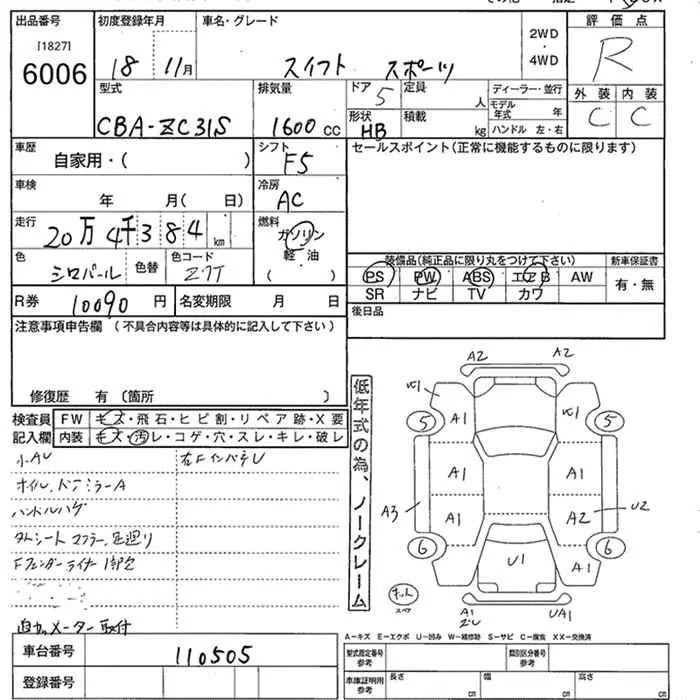 出品番号
[1827]
6006
初度登録年月
18 11月
車名・グレード
スイフト スポーツ
2WD
・
4WD
評価点
R
外装 内装
C C
型式
CBA-ZC31S
排気量
1600 cc
ドア 5
形状
HB
定員
人
積載
kg
ディーラー・並行
モデル年式 年
ハンドル 左・右
車歴
自家用・( )
シフト
F5
セールスポイント(正常に機能するものに限ります)
車検
年 月( 日)
冷房
AC
走行
20万4千384 km
燃料
ガソリン
軽油
( )
色
シロパール
色替
色コード
Z7T
装備品(純正品に限り丸をつけて下さい)
PS PW ABS エアB AW
SR ナビ TV カワ
新車保証書
有・無
R券 10090 円
名変期限 月 日
後日品
注意事項申告欄 (不具合内容等は具体的に記入して下さい)
修復歴 有 (箇所 )
検査員
記入欄
FW キズ・飛石・ヒビ割・リペア跡・X要
内装 キズ・汚レ・コゲ・穴・スレ・キレ・破レ
小AU
オイル、ドアミラーA
ハンドルハゲ
Fフェンダーライナー1部欠
メーター取付
低年式の為、ノークレーム
A2 A2
W1
A1 W1
5 5
A1 A1
A3 A1 A2 U2
6 6
A1 U1 A1
A1 UA1
A-キズ E-エクボ U-凹み W-補修跡 S-サビ C-腐食 XX-交換済
車台番号 110505
登録番号
型式指定番号
参考
類別区分番号
参考
車庫証明用
参考
長さ cm
幅 cm
高さ cm